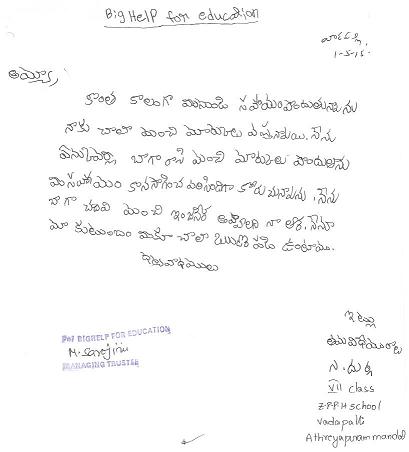 Big Help for education
వాడపల్లి
1-5-15.
అయ్యా,
కొంత కాలంగా మీనుండి సహాయం పొందుతున్నాను
నాకు చాలా మంచి మార్కులు వస్తున్నాయి. నేను
బాగా రాసి మంచి మార్కులు పొందుతాను
మీ సహాయం కొనసాగించ వలసిందిగా కోరుచున్నాను. నేను
బాగా చదివి మంచి ఇంజనీర్ అవ్వాలని నా ఆశ. నేను
మా కుటుంబం మీకు చాలా ఋణపడి ఉంటాము.
ధన్యవాదములు
ఇట్లు
For BIGHELP FOR EDUCATION
M. Sarojini
MANAGING TRUSTEE
VII class
Z.P.P.H School
Vadapalli
Athreyapuram mandal